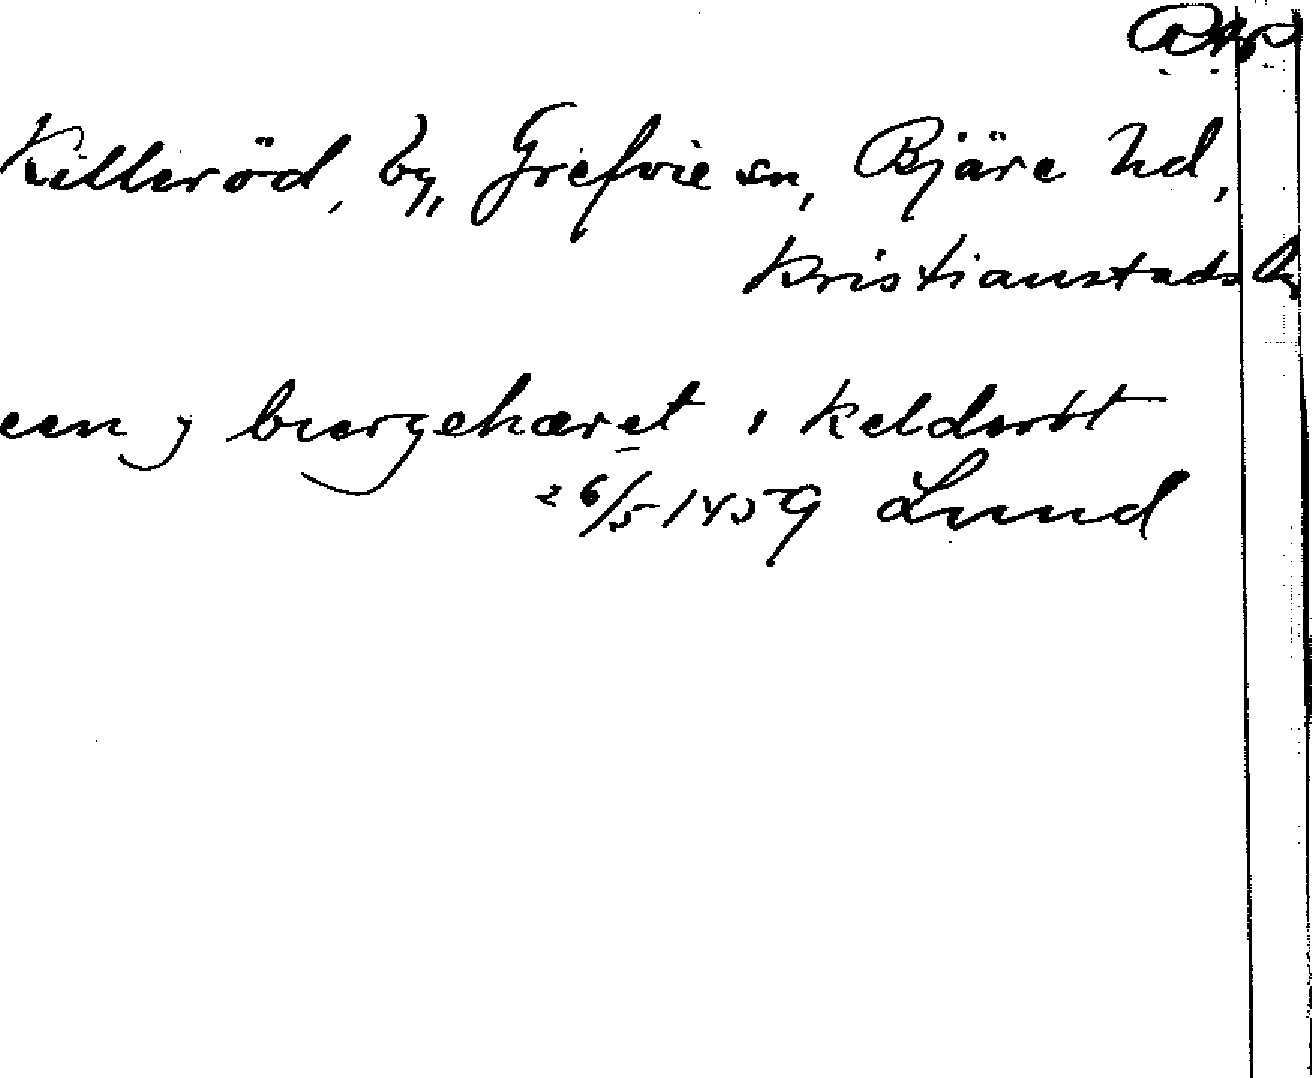 Killeröd, by, Grefvie sn, Bjäre hd,
Kristianstads
een j burgehæret i keldsröt
26/5 1459 Lund